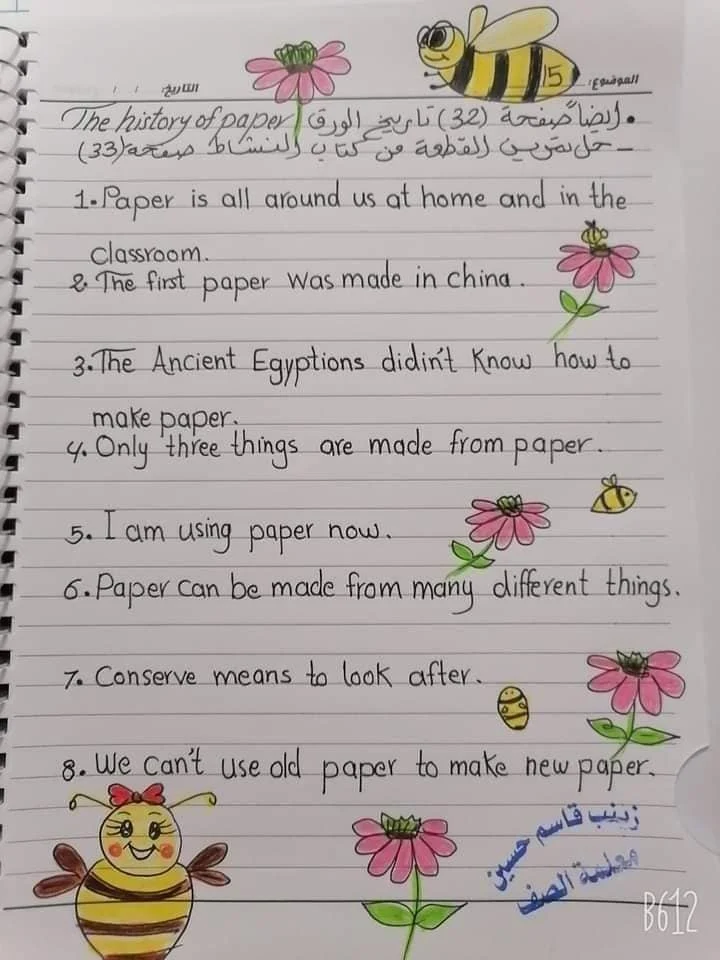 15
الموضوع:
التاريخ: / /
• ايضاً صفحة (32) تاريخ الورق The history of paper
- حل تمرين القطعة من كتاب النشاط صفحة (33)
1. Paper is all around us at home and in the
classroom.
2. The first paper was made in china.
3. The Ancient Egyptions didin't Know how to
make paper.
4. Only three things are made from paper.
5. I am using paper now.
6. Paper can be made from many different things.
7. Conserve means to look after.
8. We can't use old paper to make new paper.
زينب قاسم حسين
معلمة الصف
B612